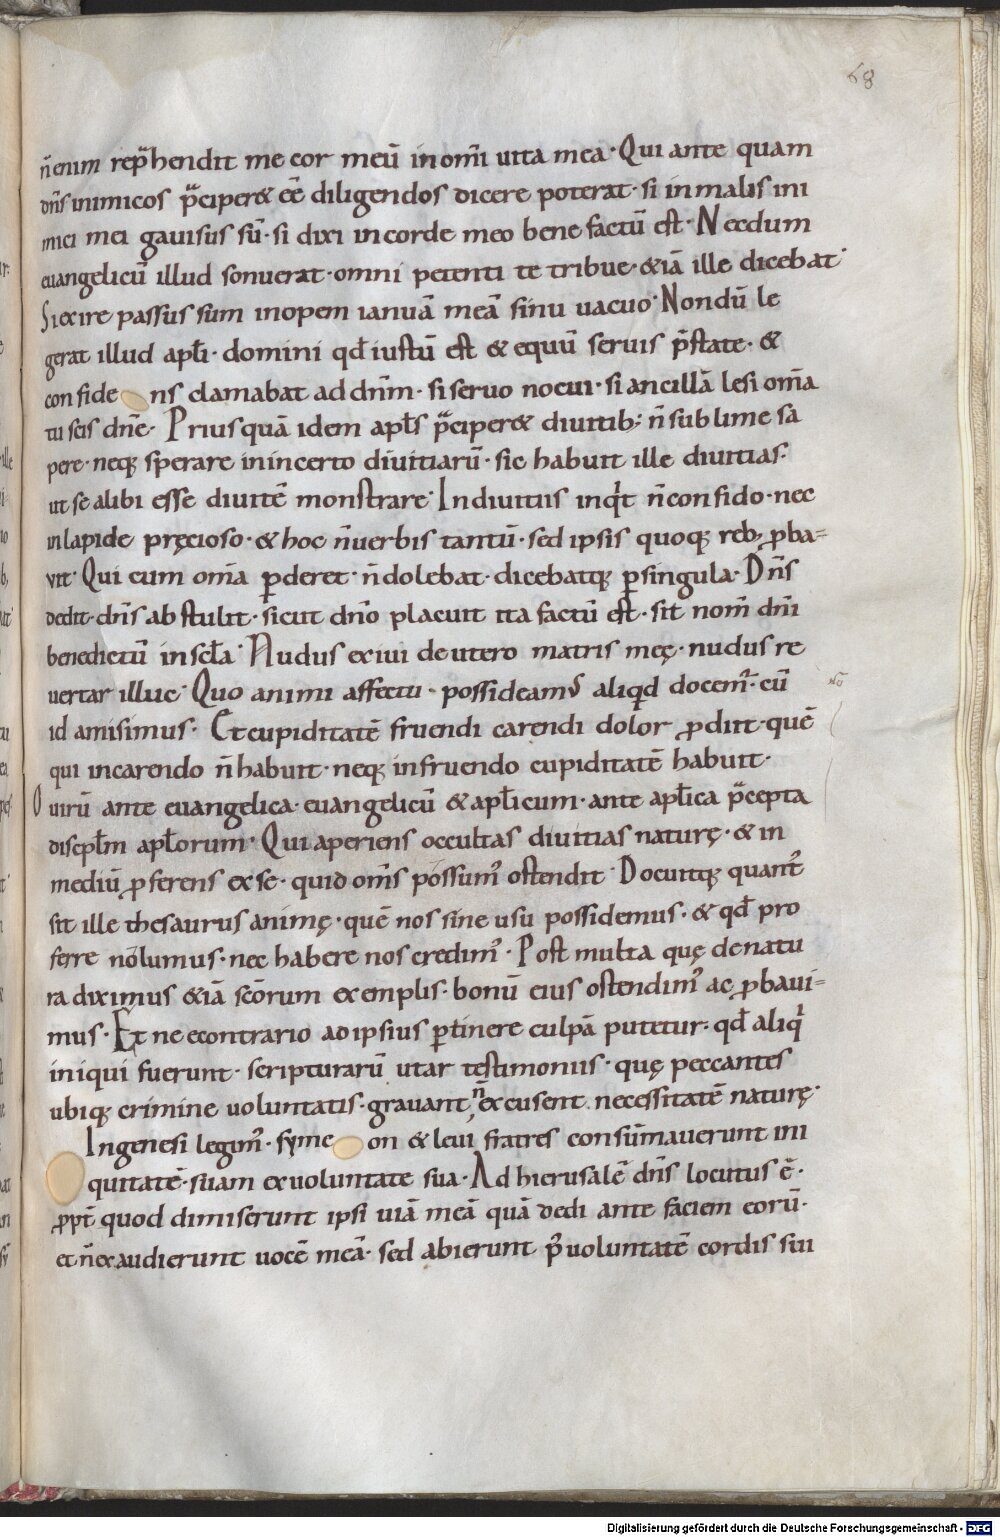 68
n̄ enim rep̄hendit me cor meū in om̄i uita mea· Qui ante quam
dn̄s inimicos p̄ciper& ēe diligendos dicere poterat· si in malis ini
mici mei gauisus sū· si dixi in corde meo bene factū est· Necdum
euangelicū illud sonuerat· omni petenti te tribue· &iā ille dicebat·
Si exire passus sum inopem ianuā meā sinu uacuo· Nondū le
gerat illud apłi· domini qđ iustū est & equū seruis p̄state· &
confide ns clamabat ad dn̄m· si seruo nocui· si ancillā lesi om̄a
tu scis dn̄e· Prius quā idem apłs p̄ciper& diuitib; n̄ sublime sa
pere· neq; sperare in incerto diuitiarū· sic habuit ille diuitias·
ut se alibi esse diuitē monstraret· In diuitiis inq̇t n̄ confido· nec
in lapide pręcioso· & hoc n̄ uerbis tantū· sed ipsis quoq; reb; ꝓba-
uit· Qui cum om̄a ꝑderet· n̄ dolebat· dicebatq; ꝑ singula· Dn̄s
dedit· dn̄s abstulit· sicut dn̄o placuit ita factū est· sit nom̄ dn̄i
benedictū in scła· Nudus exiui de utero matris meę· nudus re
uertar illuc· Quo animi affectu· possideam᷒ aliqd docem᷒· cū
id amisimus· Et cupiditatē fruendi carendi dolor ꝓdit· quē
qui in carendo n̄ habuit· neq; in fruendo cupiditatē habuit·
O uirū ante euangelica· euangelicū & apłicum· ante apłica p̄cepta
discipłm apłorum· Qui aperiens occultas diuitias naturę· & in
mediū ꝓferens ex se· quid om̄s possum᷒ ostendit· Docuitq; quant᷒
sit ille thesaurus animę· quē nos sine usu possidemus· & qđ pro
ferre nōlumus· nec habere nos credim᷒· Post multa quę de natu
ra diximus &iā scōrum exemplis· bonū eius ostendim᷒ ac ꝓbaui-
mus· Et ne econtrario ad ipsius ꝑtinere culpā putetur· qđ aliq̇
iniqui fuerunt· scripturarū utar testimoniis· quę peccantes
ubiq; crimine uoluntatis· grauant n̄ excusent necessitatē naturę·
In genesi legim᷒· syme on & leui fratres consūmauerunt ini
quitatē· suam ex uoluntate sua· Ad hierusalē dn̄s locutus ē·
ꝓpt̄ quod dimiserunt ipsi uiā meā quā dedi ante faciem eorū·
et n̄ exaudierunt uocē meā· sed abierunt p᷒ uoluntatē cordis sui
Digitalisierung gefördert durch die Deutsche Forschungsgemeinschaft - DFG